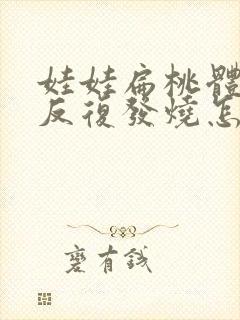 娃娃扁桃體
反復發燒怎
麽有錢